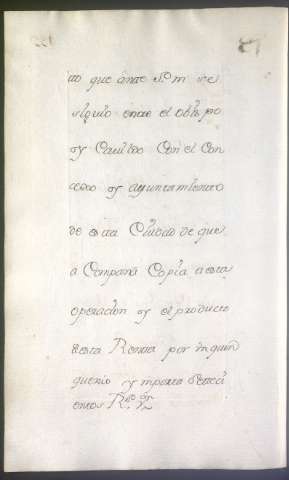 to que ante S.M. se
siguio entre el obispo
y Cavildo Con el Con
cejo y ayuntamiento
de esta Ciudad de que
acompaña Copia a esta
operacion y el producto
de esta Renta por un quin
quenio y mporta Seteci
entos R.s